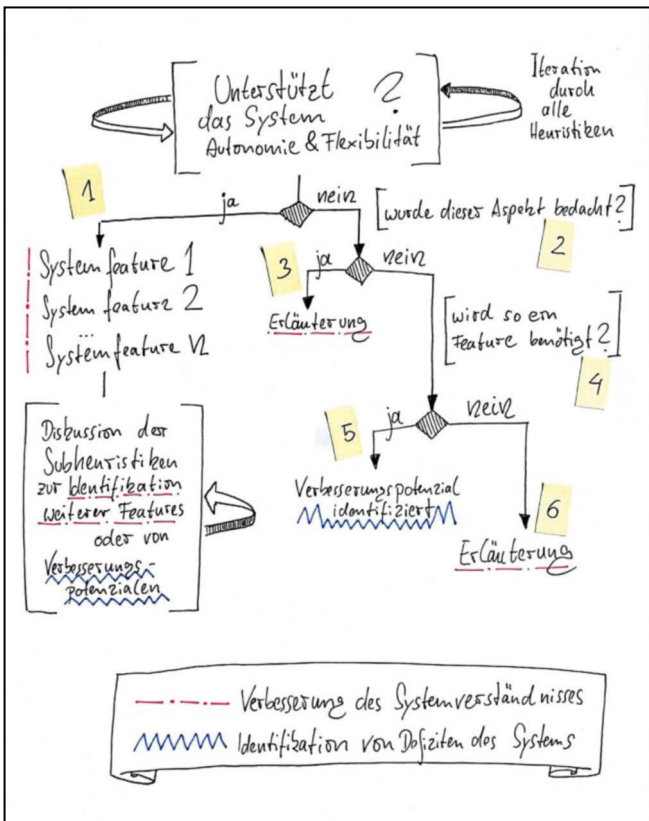 Unterstützt ?
das System
Autonomie & Flexibilität
Iteration
durch
alle
Heuristiken
1
ja
nein
[wurde dieser Aspekt bedacht?]
2
System feature 1
System feature 2
...
Systemfeature n
3
ja
nein
Erläuterung
[wird so ein
Feature benötigt?]
4
Diskussion der
Subheuristiken
zur Identifikation
weiterer Features
oder von
Verbesserungs-
potenzialen
5
ja
nein
Verbesserungspotenzial
identifiziert
6
Erläuterung
Verbesserung des Systemverständnisses
Identifikation von Defiziten des Systems